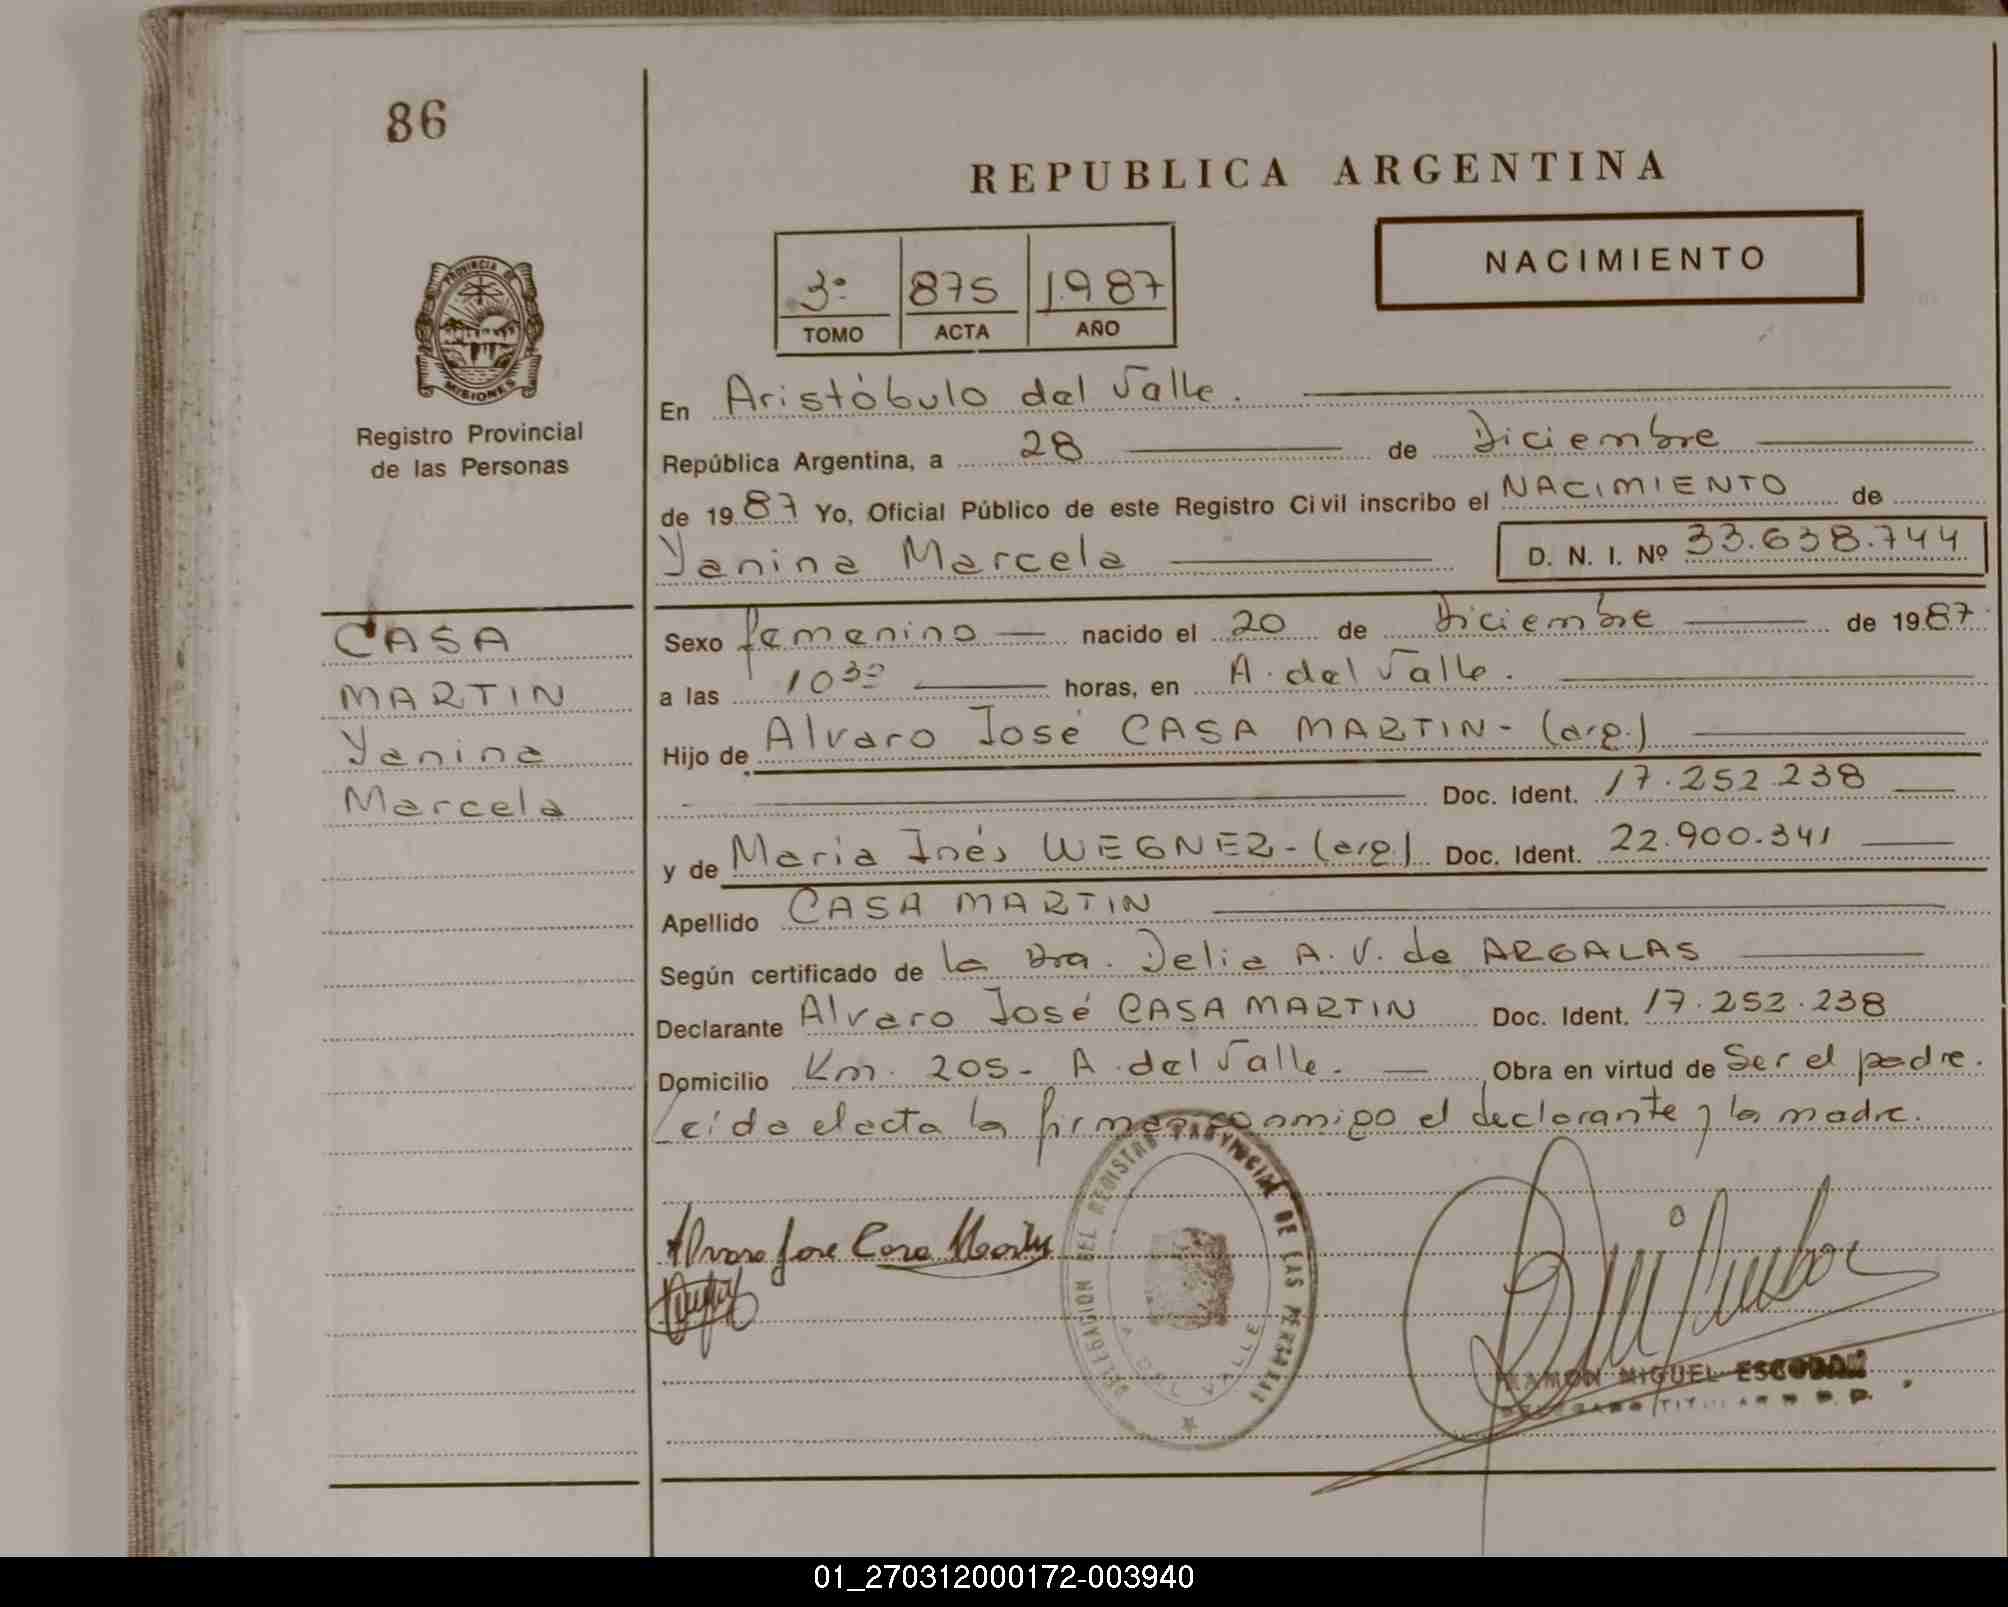 86
REPUBLICA ARGENTINA
NACIMIENTO
3º 875 1987
TOMO ACTA AÑO
PROVINCIA DE MISIONES
Registro Provincial
de las Personas
En Aristóbulo del Valle.
República Argentina, a 28 de Diciembre
de 1987 Yo, Oficial Público de este Registro Civil inscribo el NACIMIENTO de
Yanina Marcela D. N. I. Nº 33.638.744
CASA
MARTIN
Yanina
Marcela
Sexo femenino nacido el 20 de Diciembre de 1987
a las 10 30 horas, en A. del Valle.
Hijo de Alvaro José CASA MARTIN - (arg.)
Doc. Ident. 17.252.238
y de Maria Inés WEGNER - (arg.) Doc. Ident. 22.900.341
Apellido CASA MARTIN
Según certificado de la Dra. Delia A. V. de ARGALAS
Declarante Alvaro José CASA MARTIN Doc. Ident. 17.252.238
Domicilio Km. 205 - A. del Valle. Obra en virtud de Ser el padre.
Leída el acta la firman conmigo el declarante y la madre.
DELEGACION DEL REGISTRO PROVINCIAL DE LAS PERSONAS
A. DEL VALLE
Alvaro Jose Casa Martin
RAMON MIGUEL ESCOBAR
01_270312000172-003940